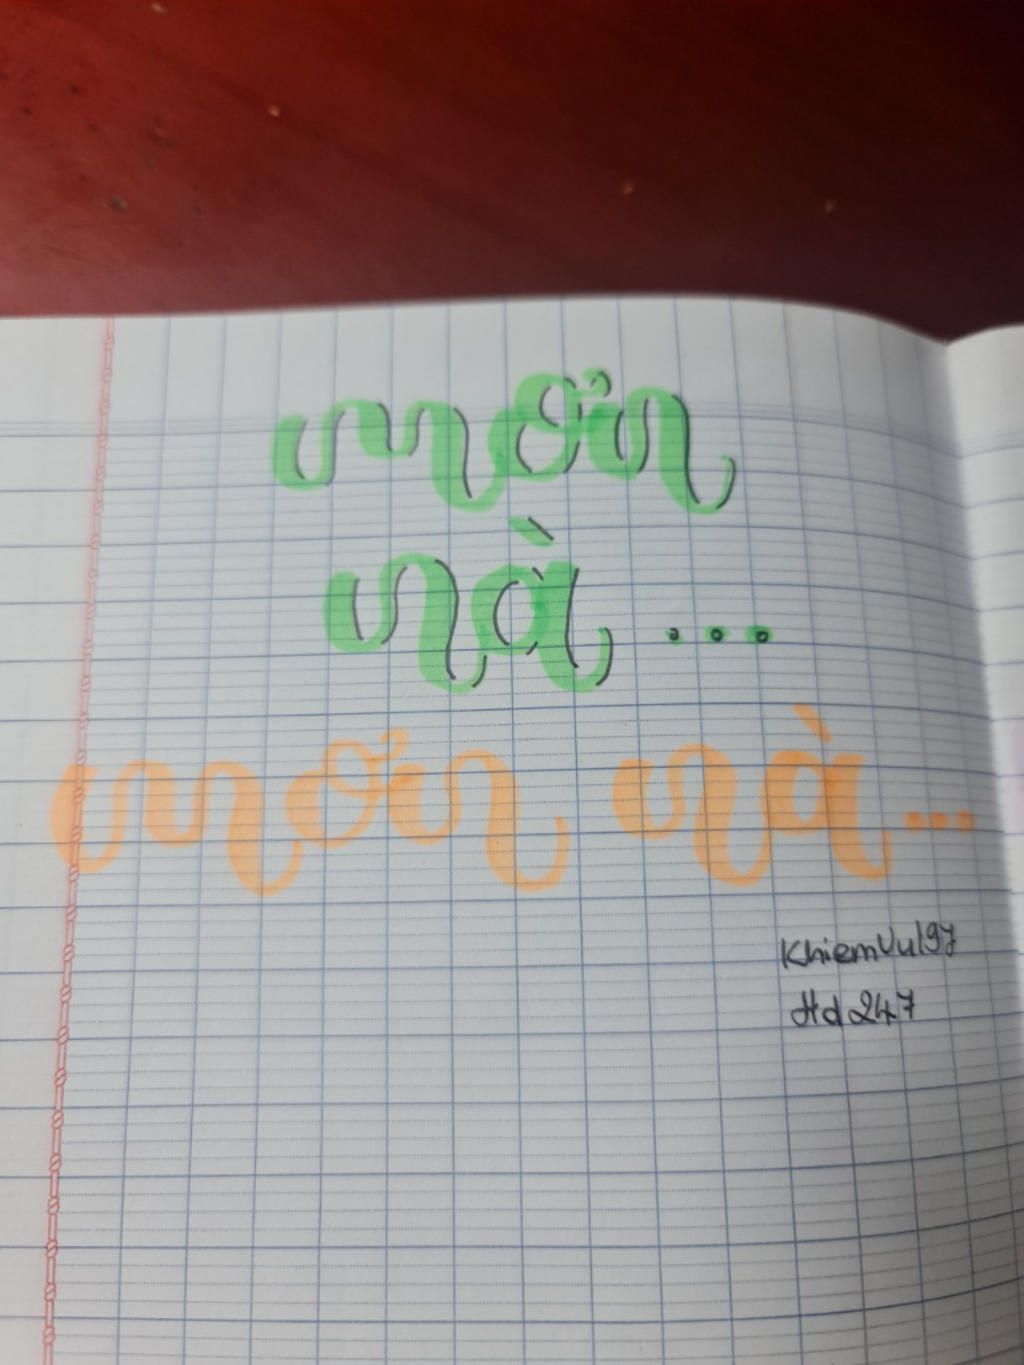 mơn
nà...
mơn nà...
KhiemVu197
Hd247